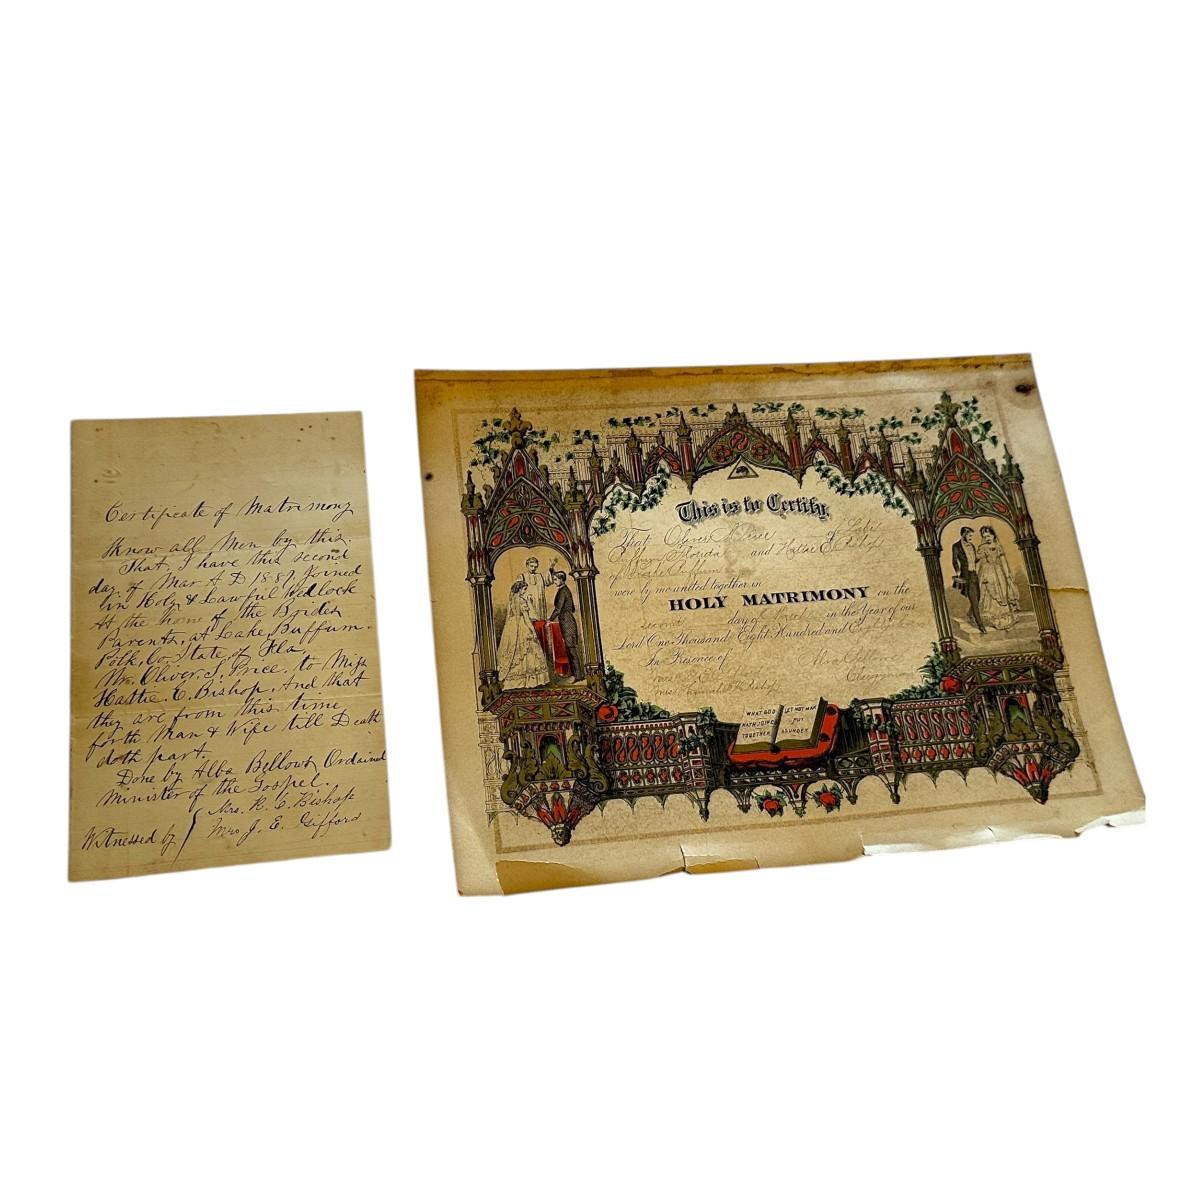 Certificate of Matrimony
Know all Men by this.
That, I have this second
day of Mar A D 1887 Joined
in Holy & Lawful Wedlock
At the home of the Brides
Parents, at Lake Buffum.
Polk, Co State of Fla,
Mr. Oliver. S. Price, to Miss
Hattie. E. Bishop, And that
they are from this time
forth Man & Wife till Death
doth part.
Done by Alba Bellows Ordained
Minister of the Gospel.
Witnessed by
Mrs. R. C. Bishop
Mrs J. E. Gifford
This is to Certify,
That Oliver S Price of Lake
Buffum Florida and Hattie E Bishop
of Lake Buffum
were by me united together in
HOLY MATRIMONY on the
second day of in the Year of our
Lord One Thousand Eight Hundred and
In Presence of
Clergyman
WHAT GOD HATH JOINED TOGETHER
LET NOT MAN PUT ASUNDER